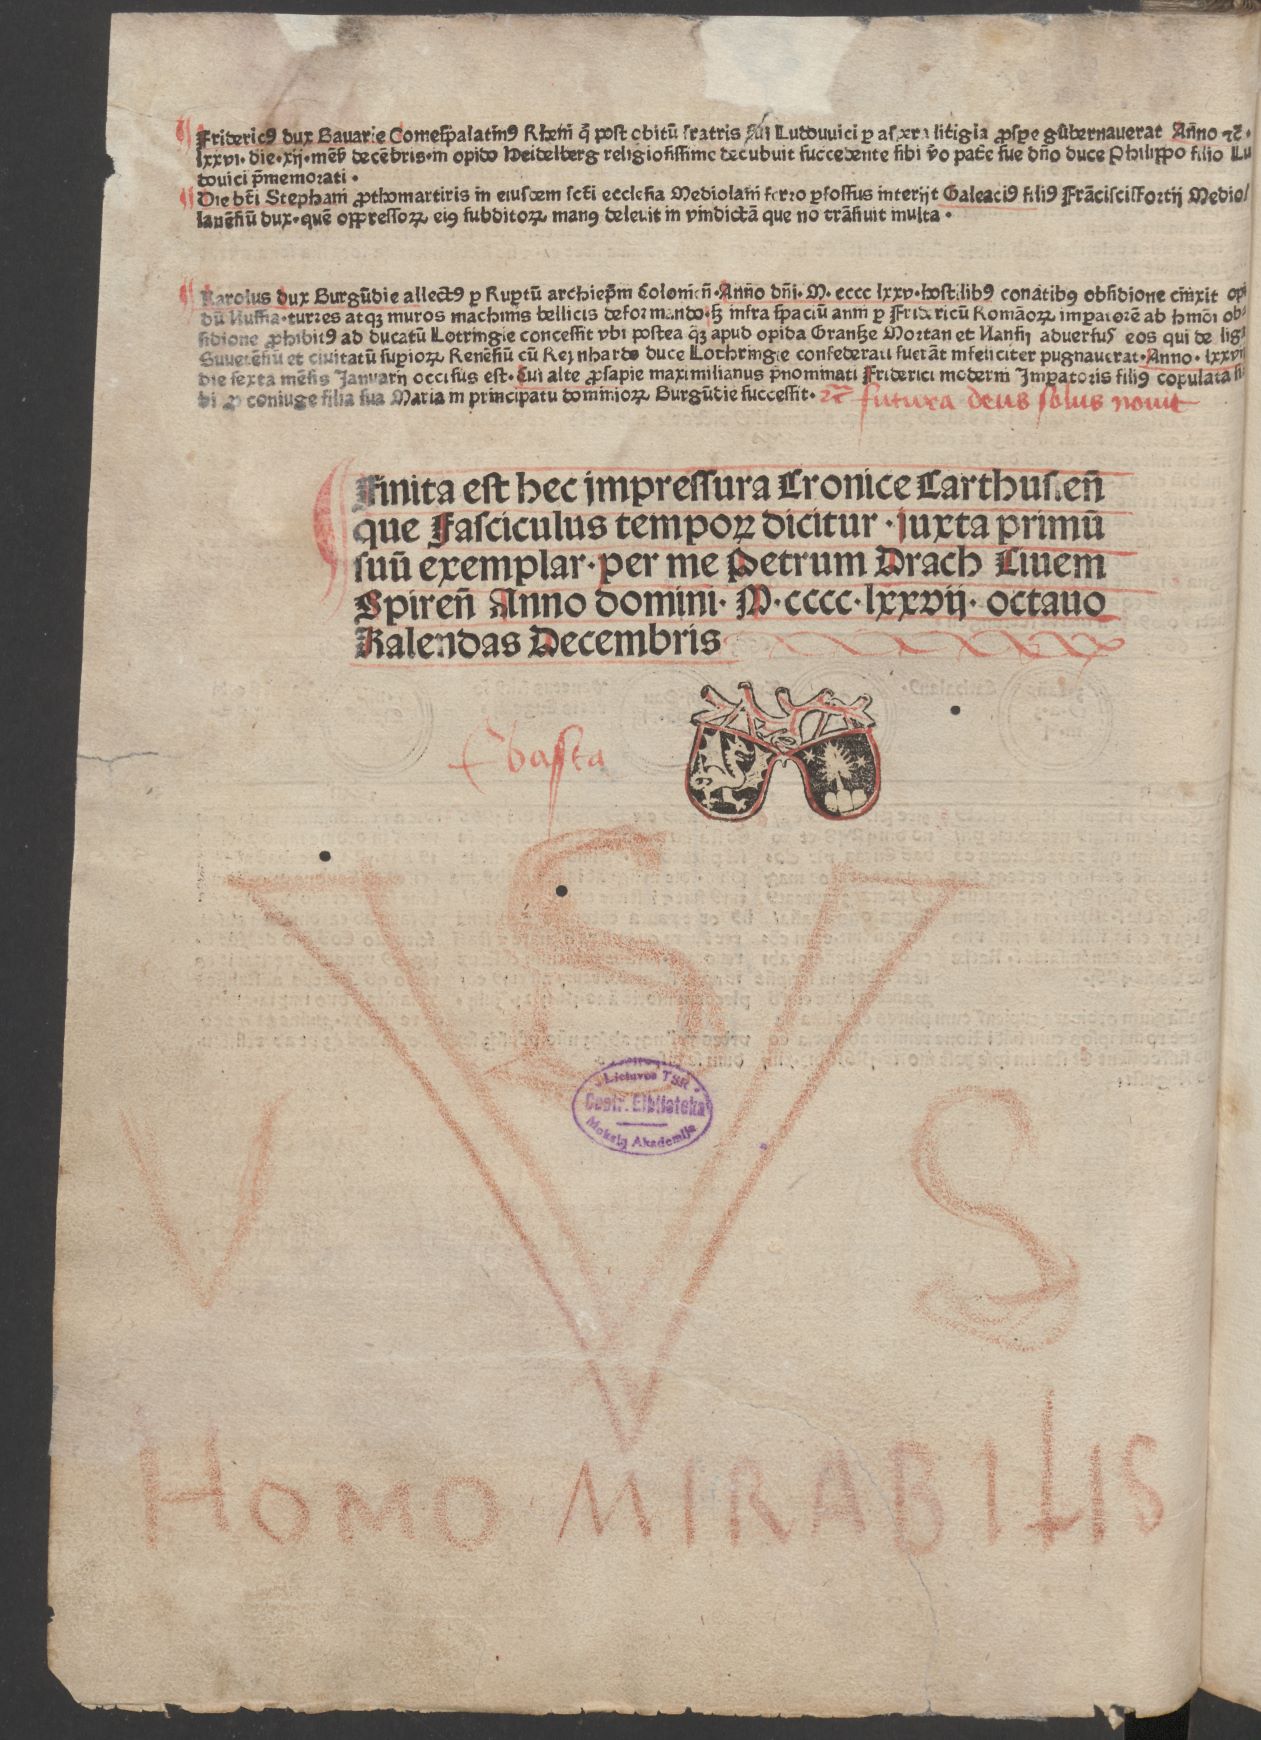 Fridericꝰ dux Bauarie Comes palatinꝰ Rheni q̄ post obitū fratris sui Ludouuici ꝑ aspera litigia ꝓspe gūbernauerat Anno ⁊c̄·
lxxvi· die·xij·mēs decēbris·in opido Heidelberg religiosissime decubuit succedente sibi v̄o pat̄e sue dn̄o duce Philippo filio Lu
douici p̄memorati·
Die bt̄i Stephani ꝓthomartiris in eiusdem sct̄i ecclesia Mediolani ferro ꝑfossus interijt Galeaciꝰ filiꝰ Frācisci Sfortij Mediol
lanēsiū dux·quē oppressoꝝ eiꝰ subditoꝝ manꝰ deleuit in vindictā que nō trāsiuit multa·
Karolus dux Burgūdie allectꝰ ꝑ Ruꝑtū archiep̄m Colonien̄·Anno dn̄i·M·cccc lxxv·hostilibꝰ conatibꝰ obsidione cinxit opi
dū Nussia·turres atqꝫ muros machinis bellicis deformando·sꝫ infra spaciū anni ꝑ Fridericū Romāoꝝ imꝑatorē ab hmōi ob
sidione ꝓhibitꝰ ad ducatū Lotringie concessit vbi postea qꝫ apud opida Gransze Mortan et Nansij aduersus eos qui de liga
Suuetēsiū et ciuitatū suꝑioꝝ Renēsiū cū Reynhardo duce Lothringie confederati fuerāt infeliciter pugnauerat·Anno·lxxvij
die sexta mēsis Januarij occisus est·Cui alte ꝓsapie maximilianus p̄nominati Friderici moderni Imꝑatoris filiꝰ copulata si
bi ꝓ coniuge filia sua Maria in principatu dominioꝝ Burgūdie successit·⁊c̄ futura deus solus nouit
Finita est hec impressura Cronice Carthusien̄
que Fasciculus tempoꝝ dicitur·juxta primū
suū exemplar·per me Petrum Drach Ciuem
Spiren̄ Anno domini·M·cccc·lxxvij·octauo
Kalendas Decembris
basta
VS
V S
Lietuvos TSR
Centr. Biblioteka
Mokslų Akademija
HOMO MIRABILIS